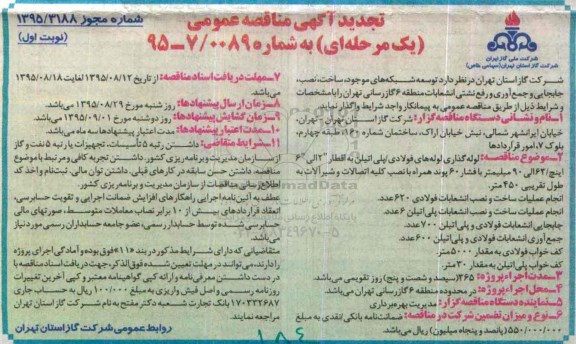 تجدید آگهی مناقصه عمومی
(یک مرحله‌ای) به شماره ۰۰۸۹/۷-۹۵
شماره مجوز ۱۳۹۵/۳۱۸۸
(نوبت اول)
شرکت ملی گاز ایران
شرکت گاز استان تهران (سهامی خاص)
شرکت گاز استان تهران در نظر دارد توسعه شبکه‌های موجود، ساخت، نصب،
جابجایی و جمع‌آوری و رفع نشتی انشعابات منطقه ۶ گازرسانی را با مشخصات
و شرایط ذیل از طریق مناقصه عمومی به پیمانکار واجد شرایط واگذار نماید.
۱-نام و نشانی دستگاه مناقصه گزار: شرکت گاز استان تهران - تهران،
خیابان ایرانشهر شمالی، نبش خیابان اراک، ساختمان شماره ۱۲، طبقه چهارم،
بلوک ۷، امور قراردادها
۲-موضوع مناقصه: لوله‌گذاری لوله‌های فولادی/پلی اتیلن به اقطار "۲ الی "۶
اینچ/۶۳ الی ۹۰ میلیمتر با فشار ۶۰ پوند همراه با نصب کلیه اتصالات و شیرآلات به
طول تقریبی ۴۵۰ متر.
انجام عملیات ساخت و نصب انشعابات فولادی ۶۲۰ عدد.
انجام عملیات ساخت و نصب انشعابات پلی اتیلن ۶ عدد.
جابجایی انشعابات فولادی و پلی اتیلن ۷۰۰ عدد.
جمع آوری انشعابات فولادی و پلی اتیلن ۶۰۰ عدد.
کف خواب فولادی به مقدار ۵۰۰۰ متر.
کف خواب پلی اتیلن به مقدار ۳۰ متر.
۳-مدت اجراء پروژه: ۳۶۵ (سیصد و شصت و پنج) روز تقویمی می‌باشد.
۴-محل اجراء پروژه: در محدوده منطقه ۶ گازرسانی تهران می باشد.
۵-نماینده دستگاه مناقصه گزار: مدیریت بهره‌برداری
۶-نوع و میزان تضمین شرکت در مناقصه: ضمانت‌نامه بانکی/نقدی به مبلغ
۵۵۰/۰۰۰/۰۰۰ (پانصد و پنجاه میلیون) ریال می‌باشد.
۷-مهلت دریافت اسناد مناقصه: از تاریخ ۱۳۹۵/۰۸/۱۲ لغایت ۱۳۹۵/۰۸/۱۸
می‌باشد.
۸-زمان ارسال پیشنهادها: روز شنبه مورخ ۱۳۹۵/۰۸/۲۹ می‌باشد.
۹-زمان گشایش پیشنهادها: روز دوشنبه مورخ ۱۳۹۵/۰۹/۰۱ می‌باشد.
۱۰-مدت اعتبار پیشنهادها: مدت اعتبار پیشنهادها سه ماه می باشد.
۱۱-شرایط متقاضی: داشتن رتبه ۵ تأسیسات، تجهیزات یا رتبه ۵ نفت و گاز
از سازمان مدیریت و برنامه ریزی کشور، داشتن تجربه کافی و مرتبط با موضوع
مناقصه، داشتن حسن سابقه در کارهای قبلی، داشتن توان مالی، ثبت‌نام و اخذ کد
اطلاع رسانی مناقصات از سازمان مدیریت و برنامه ریزی کشور.
عطف به آئین‌نامه اجرایی راهکارهای افزایش ضمانت اجرایی و تقویت حسابرسی،
انعقاد قراردادهای بیش از ۱۰ برابر نصاب معاملات متوسط، صورتهای مالی
حسابرسی شده توسط حسابدار رسمی، عضو جامعه حسابداران رسمی مورد نیاز
می‌باشد.
متقاضیانی که دارای شرایط مذکور در بند «۱۱» فوق بوده و آمادگی اجرای پروژه
را دارند می توانند در مهلت تعیین شده فوق الذکر، جهت دریافت اسناد مناقصه با
در دست داشتن معرفی‌نامه و ارائه کپی گواهینامه معتبر و کپی آخرین تغییرات
روزنامه رسمی و اصل فیش واریزی به مبلغ ۱۰۰/۰۰۰ ریال به حساب جاری
۱۷۰۳۳۲۶۸۷ بانک تجارت شعبه دکتر مفتح به نام شرکت گاز استان تهران
مراجعه نمایند.
روابط عمومی شرکت گاز استان تهران
۱۸۴